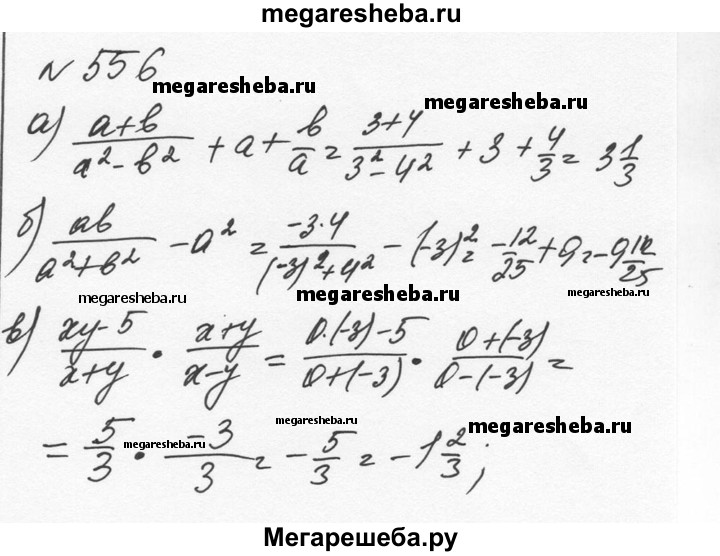 megaresheba.ru
№ 556
megaresheba.ru megaresheba.ru
а) (a+b)/(a²-b²) + a + b/a = (3+4)/(3²-4²) + 3 + 4/3 = 3 1/3
б) ab/(a²+b²) - a² = (-3·4)/((-3)²+4²) - (-3)² = -12/25 + 9 = -9 12/25
megaresheba.ru megaresheba.ru megaresheba.ru
в) (xy-5)/(x+y) · (x+y)/(x-y) = (0·(-3)-5)/(0+(-3)) · (0+(-3))/(0-(-3)) =
= 5/3 · (-3)/3 = -5/3 = -1 2/3;
megaresheba.ru megaresheba.ru
Мегарешеба.ру